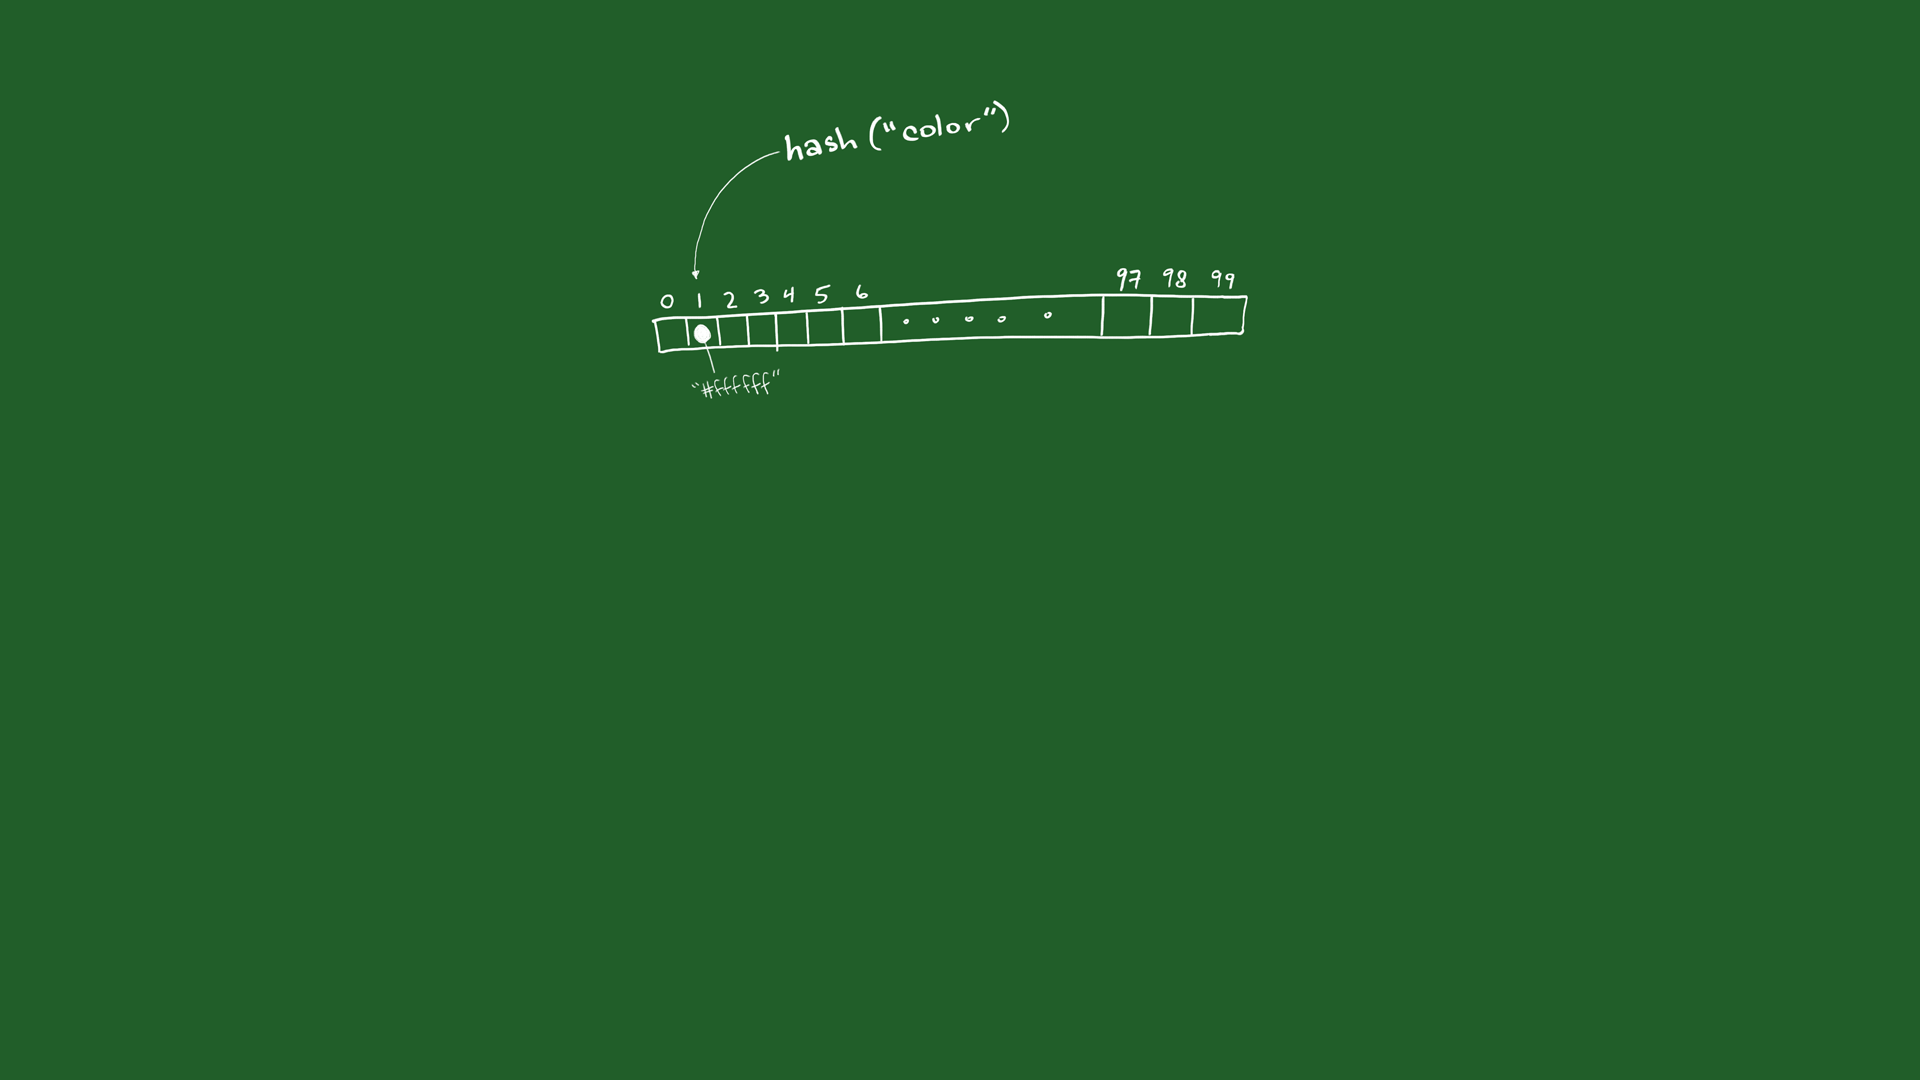 hash ("color")
0 1 2 3 4 5 6 97 98 99
"#ffffff"